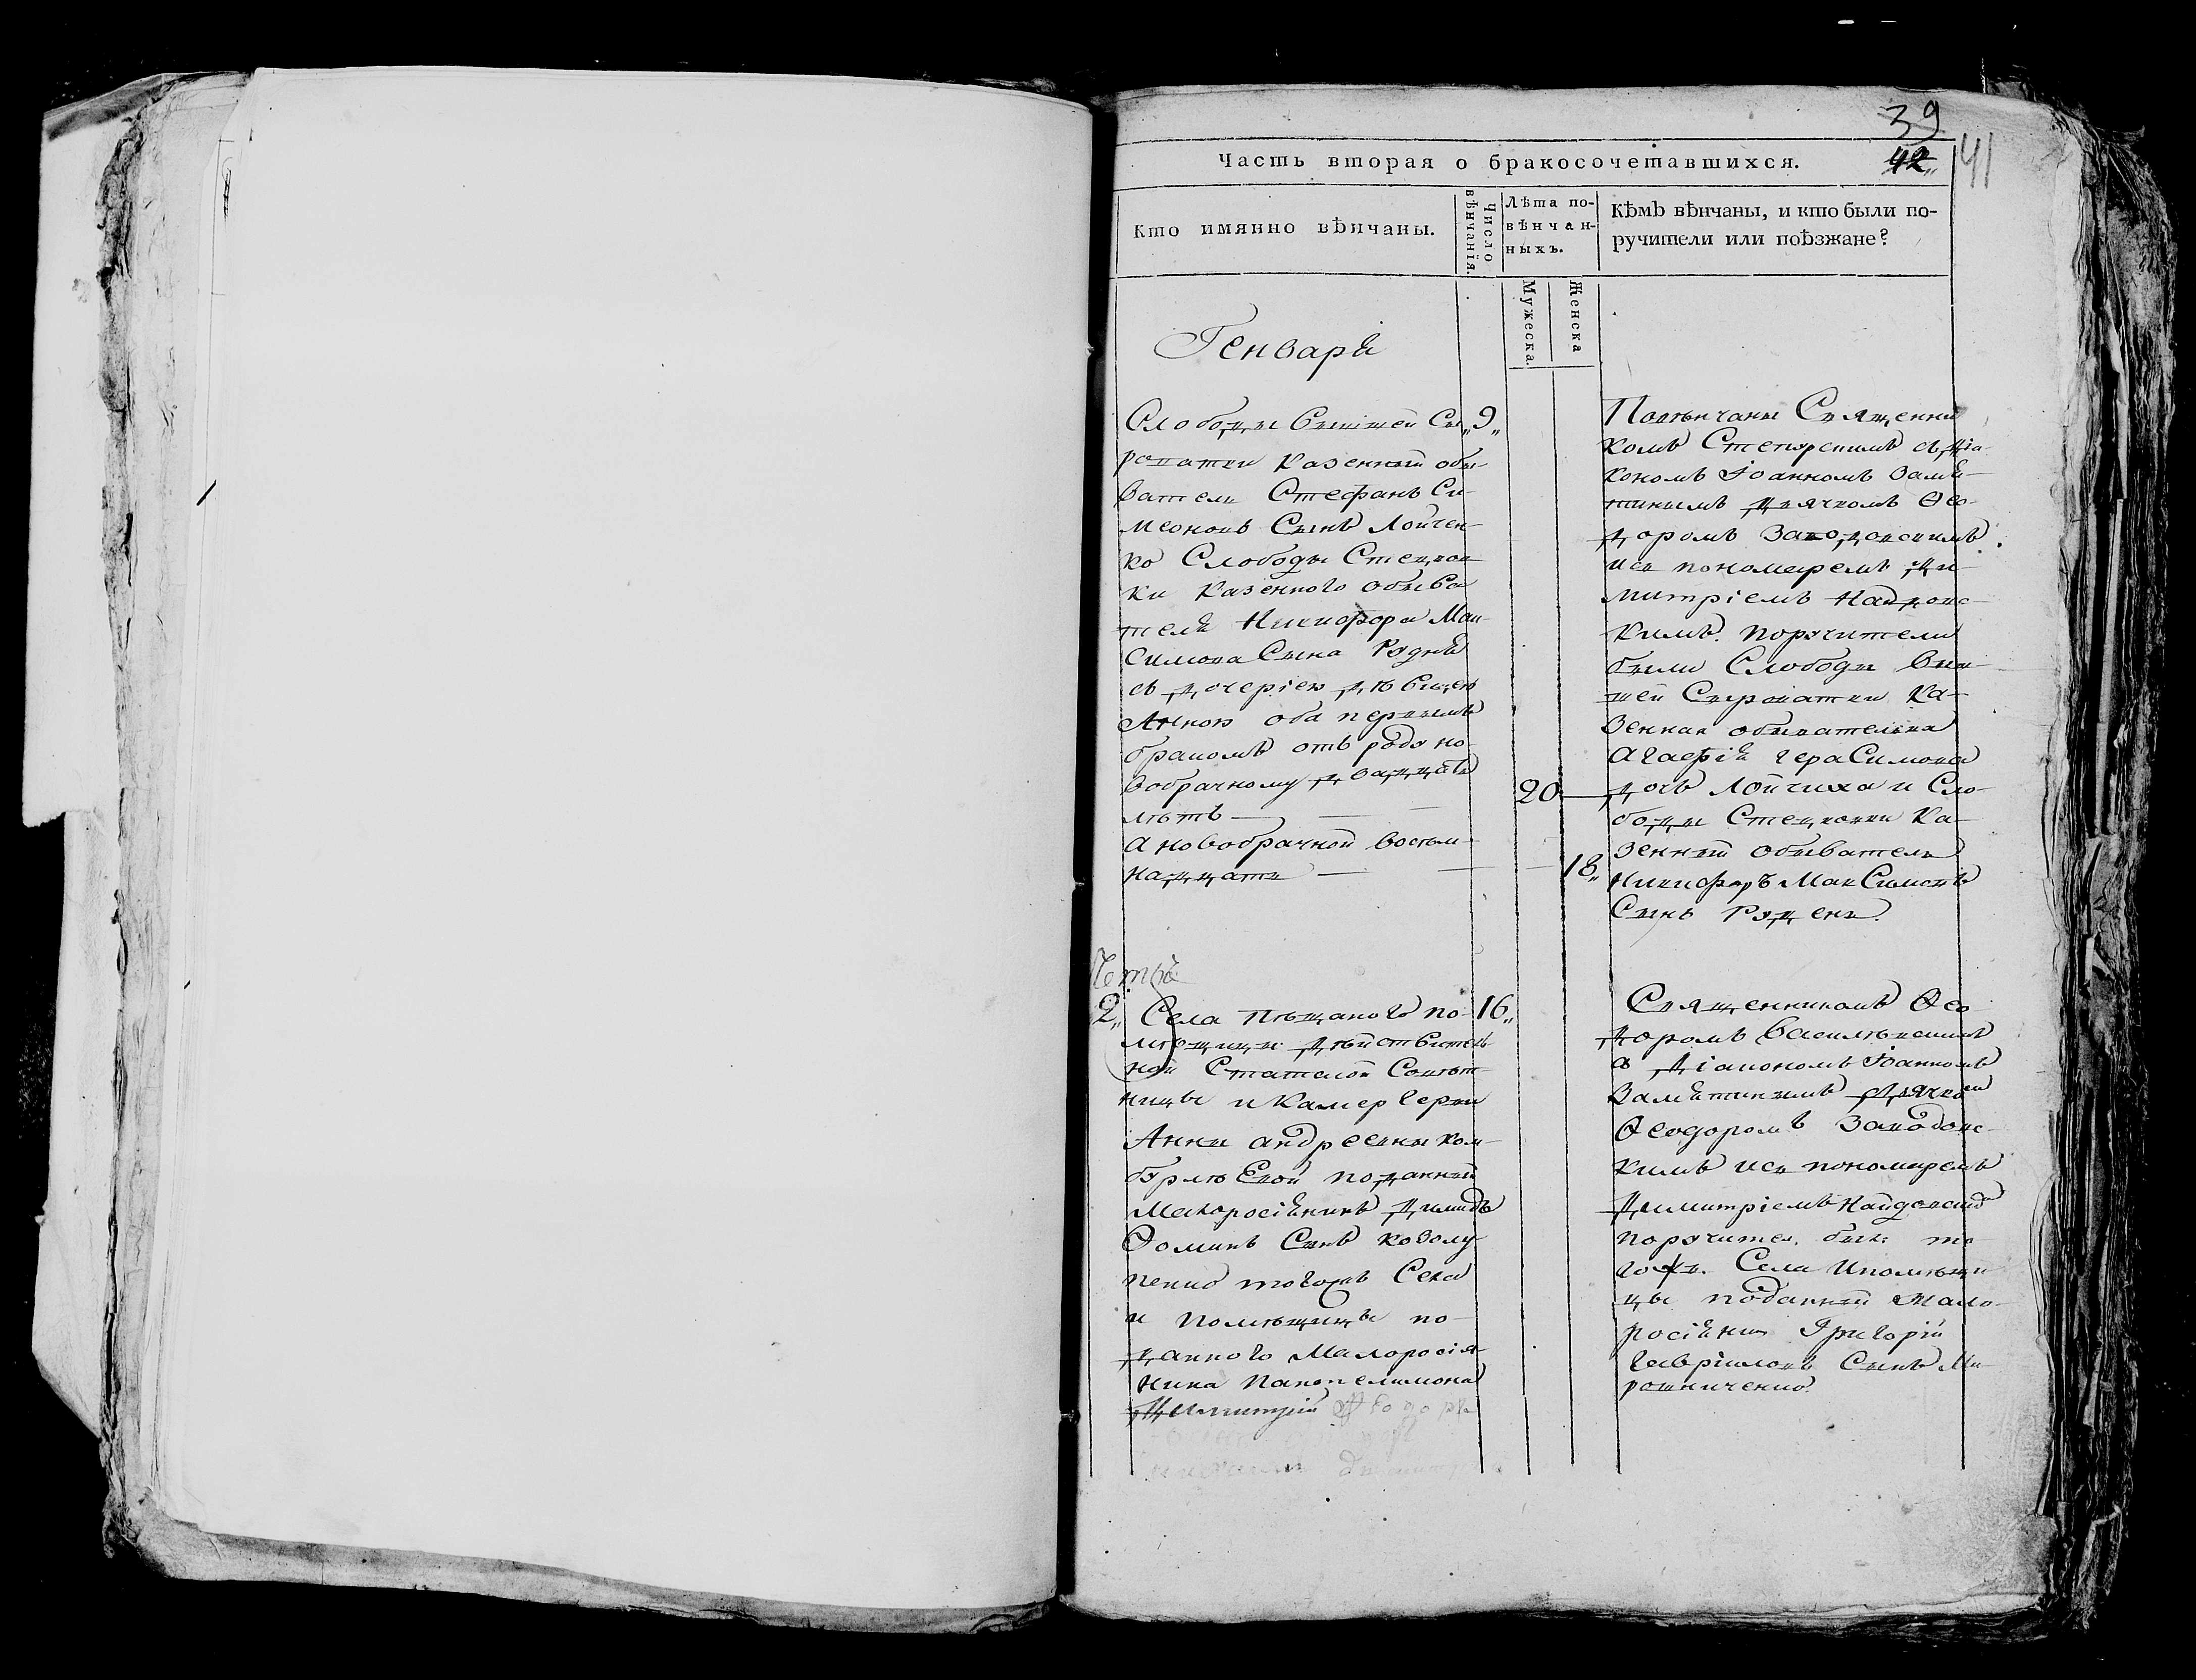 39
Часть вторая о бракосочетавшихся.
42 41
Кто имянно вѣнчаны.
Число вѣнчанія
Лѣта по-
вѣнчан-
ныхъ.
Мужеска.
Женска
Кѣмъ вѣнчаны, и кто были по-
ручители или поѣзжане?
Генваря
Слободы Вышшей Сы„
роватки казенный обы-
ватель Стефанъ Си-
меоновъ Сынъ Лойчен-
ко Слободы Стецков
ки казенного обыва
теля Никифора Мак-
симова Сына Рудня
съ дочерью дѣвицею
Анною оба первымъ
бракомъ отъ роду но-
вобрачному двадцать
лѣтъ —
а новобрачной восем-
надцать —
„9„
20
18„
Повѣнчаны Священни
комъ Степурскимъ съ діа-
кономъ Іоанномъ Замя-
тинымъ дьячкомъ Ѳео-
доромъ
и съ пономаремъ Ди-
митріемъ
кимъ поручители
были Слободы Выш-
шей Сыроватки ка-
зенная обывателька
Агафія Герасимова
дочь Лойчиха и Сло-
боды Стецковки ка-
зенный обыватель
Никифоръ Максимовъ
Сынъ Рудень.
2„ Села Пѣщаного по-
мѣщицы дѣйствитель
ной Статской Совѣт-
ницы и Камергерши
Анны андреевны ком-
бурлѣевой поданный
Малоросіянинъ Димидъ
Ѳоминъ Сынъ
тогожъ Села
и помѣщицы по-
данного Малоросія-
нина Пантелимона
16„
Священникомъ Ѳео
доромъ Василѣвскимъ
съ Діакономъ Іоанномъ
Замятинымъ дьячком
Ѳеодоромъ
кимъ и съ пономаремъ
Димитріемъ
поручител. были то
гожъ Села и помѣщи
цы поданный Мало-
росіянин Григорій
Гавріиловъ Сынъ Ми-
рошниченко.